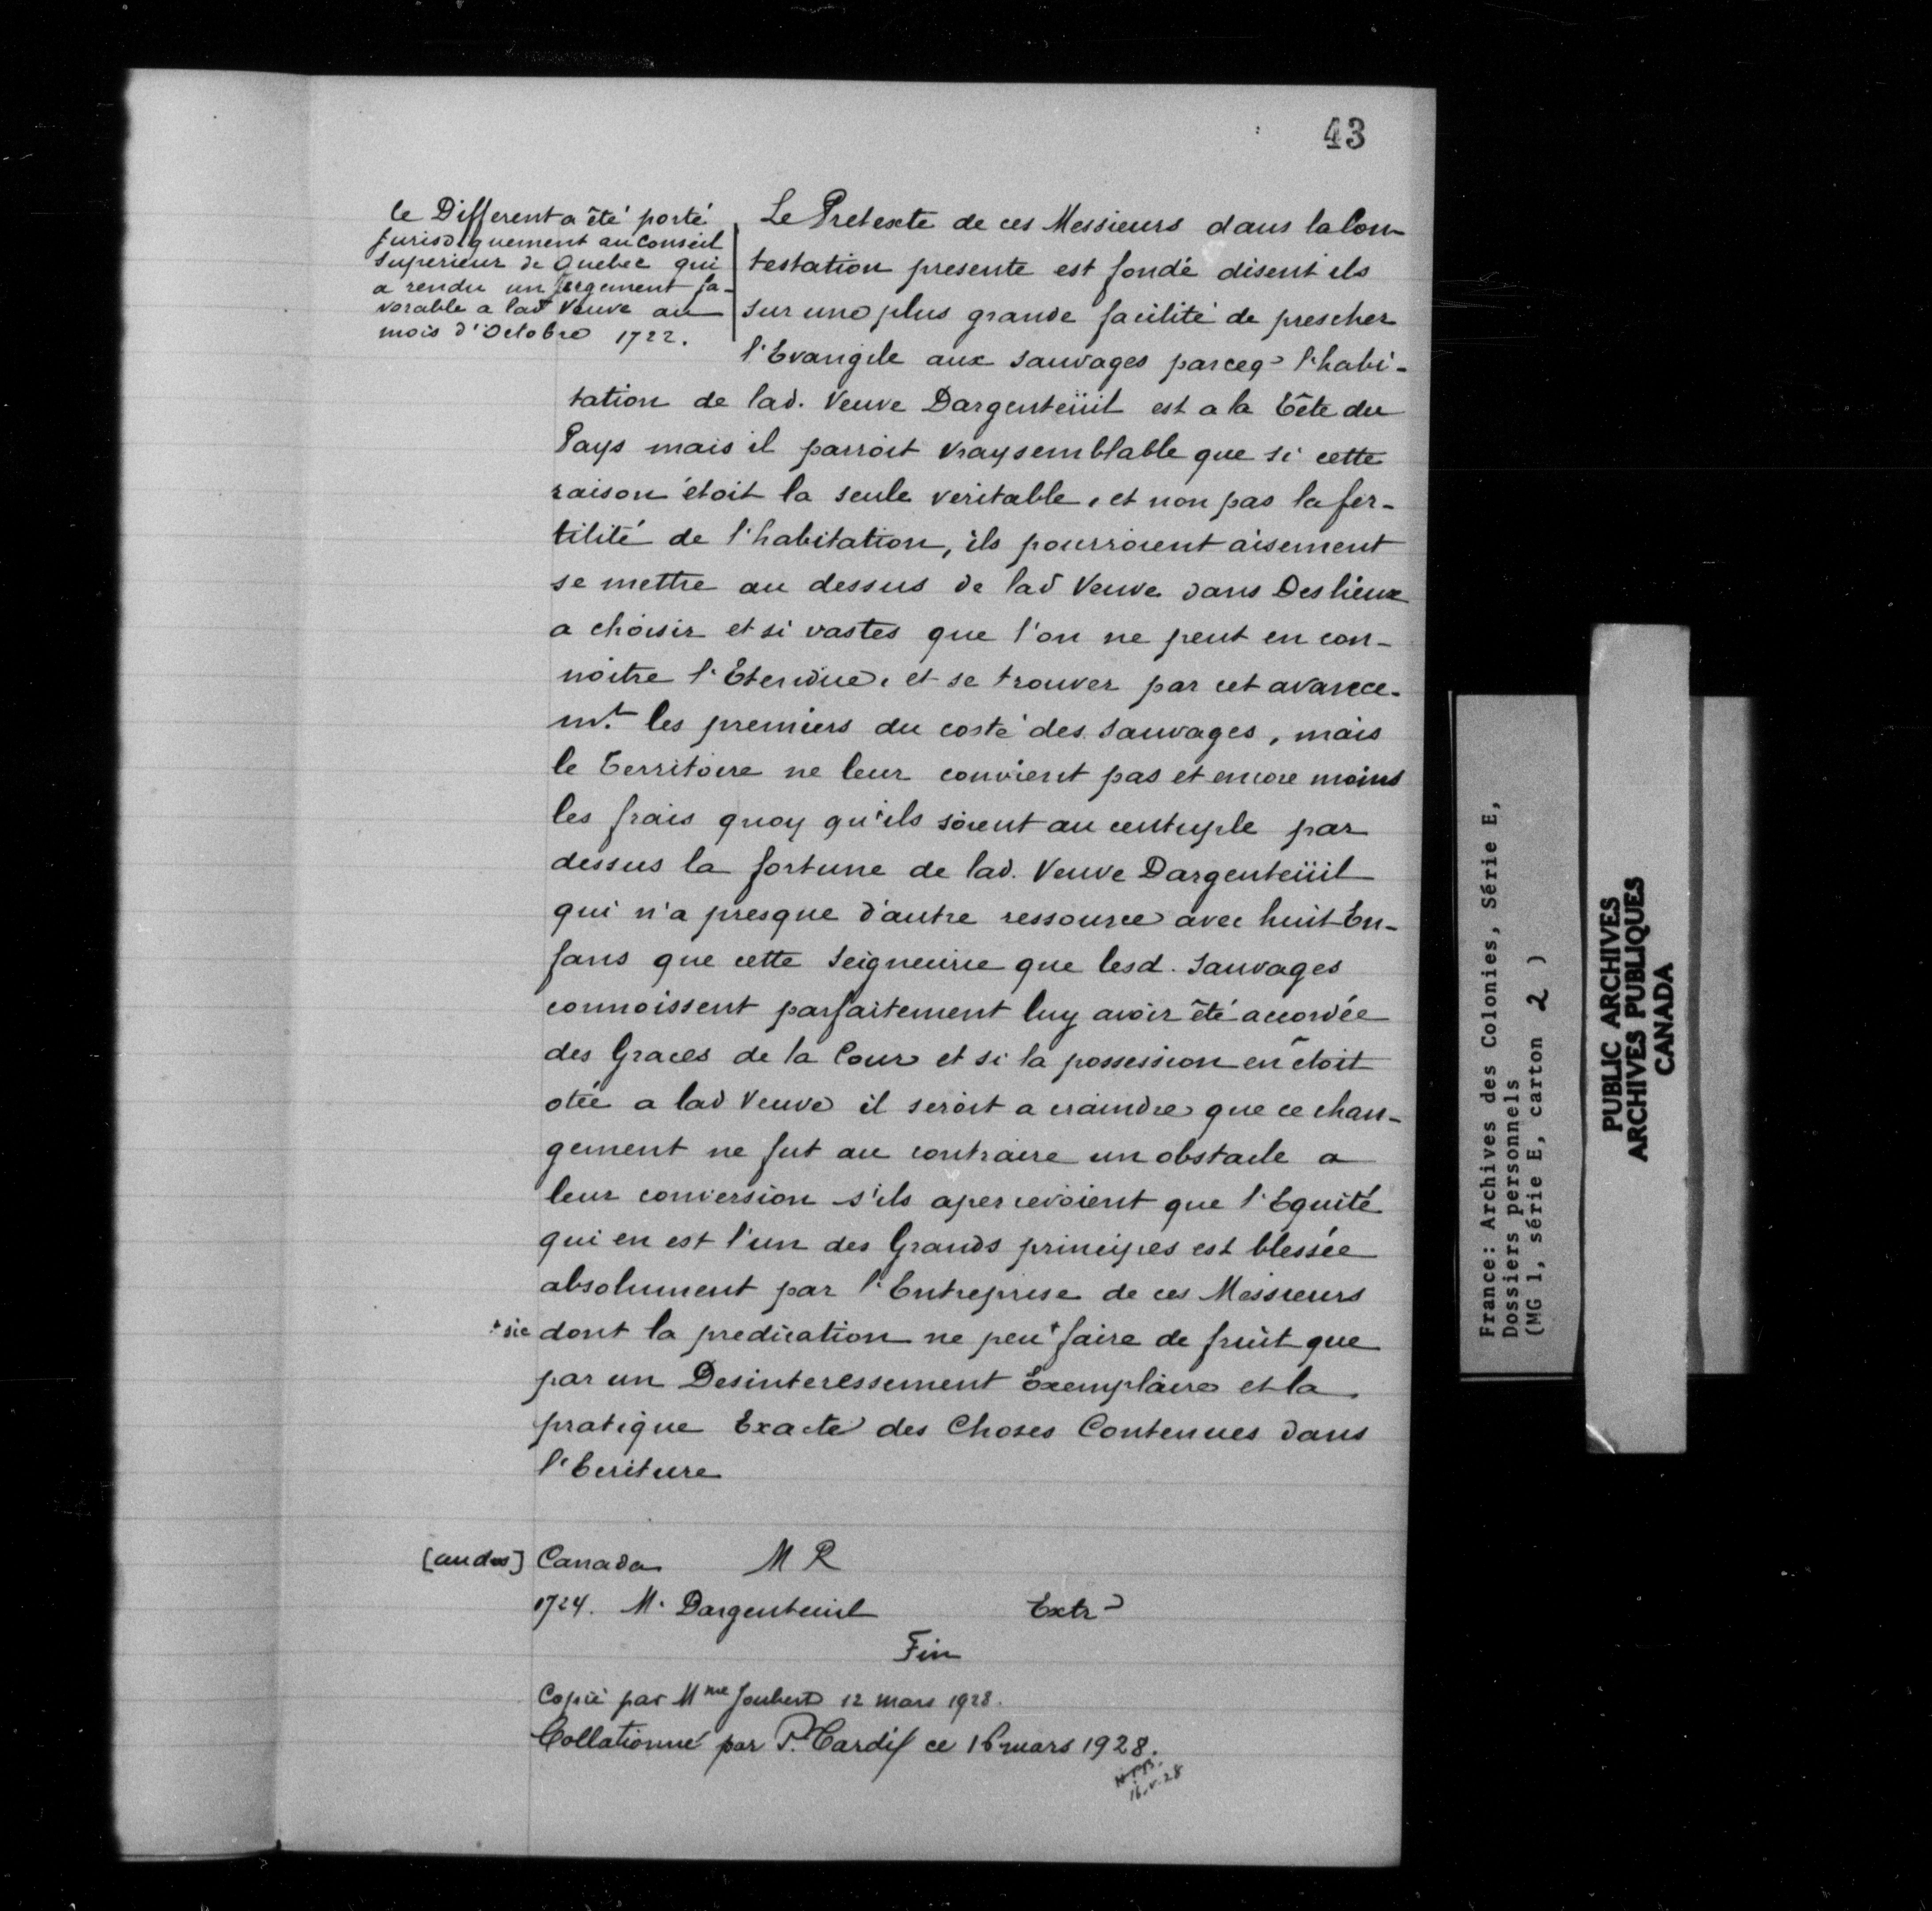 43
le Different a été porté
Jurisdiquement au Conseil
Superieur de Quebec qui
a rendu un Jugement fa-
vorable a lad Veuve au
mois d'Octobre 1722.
Le Pretexte de ces Messieurs dans la Con-
testation presente est fondé disent ils
sur une plus grande facilité de prescher
l'Evangile aux Sauvages parceq l'habi-
tation de lad. Veuve Dargenteüil est a la Tête du
Pays mais il parroit vraysemblable que si cette
raison étoit la seule veritable, et non pas la fer-
tilité de l'habitation, ils pourroient aisement
se mettre au dessus de lad Veuve dans Des lieux
a choisir et si vastes que l'on ne peut en con-
noitre l'Etendue, et se trouver par cet avance-
mt. les premiers du costé des Sauvages, mais
le Territoire ne leur convient pas et encore moins
les frais quoy qu'ils soient au centuple par
dessus la fortune de lad. Veuve Dargenteüil
qui n'a presque d'autre ressource avec huit En-
fans que cette Seigneurie que lesd. Sauvages
connoissent parfaitement luy avoir été accordée
des Graces de la Cour et si la possession en étoit
otée a lad Veuve il seroit a craindre que ce chan-
gement ne fut au contraire un obstacle a
leur conversion s'ils apercevoient que l'Equité
qui en est l'un des Grands principes est blessée
absolument par l'Entreprise de ces Messieurs
+ sic dont la predication ne peu+ faire de fruit que
par un Desinteressement Exemplaire et la
pratique Exacte des Choses Contenues dans
l'Ecriture
[au dos] Canada M R
1724. M. Dargenteuil Extr
Fin
Copié par Mme Joubert 12 mars 1928.
Collationné par P. Tardif ce 16 mars 1928.
16.V.28
France: Archives des Colonies, Série E,
Dossiers personnels
(MG 1, série E, carton 2 )
PUBLIC ARCHIVES
ARCHIVES PUBLIQUES
CANADA